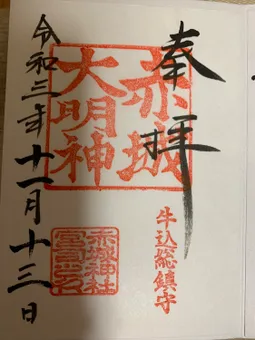 奉拝
赤城
大明神
牛込総鎮守
赤城神社
令和三年十一月十三日